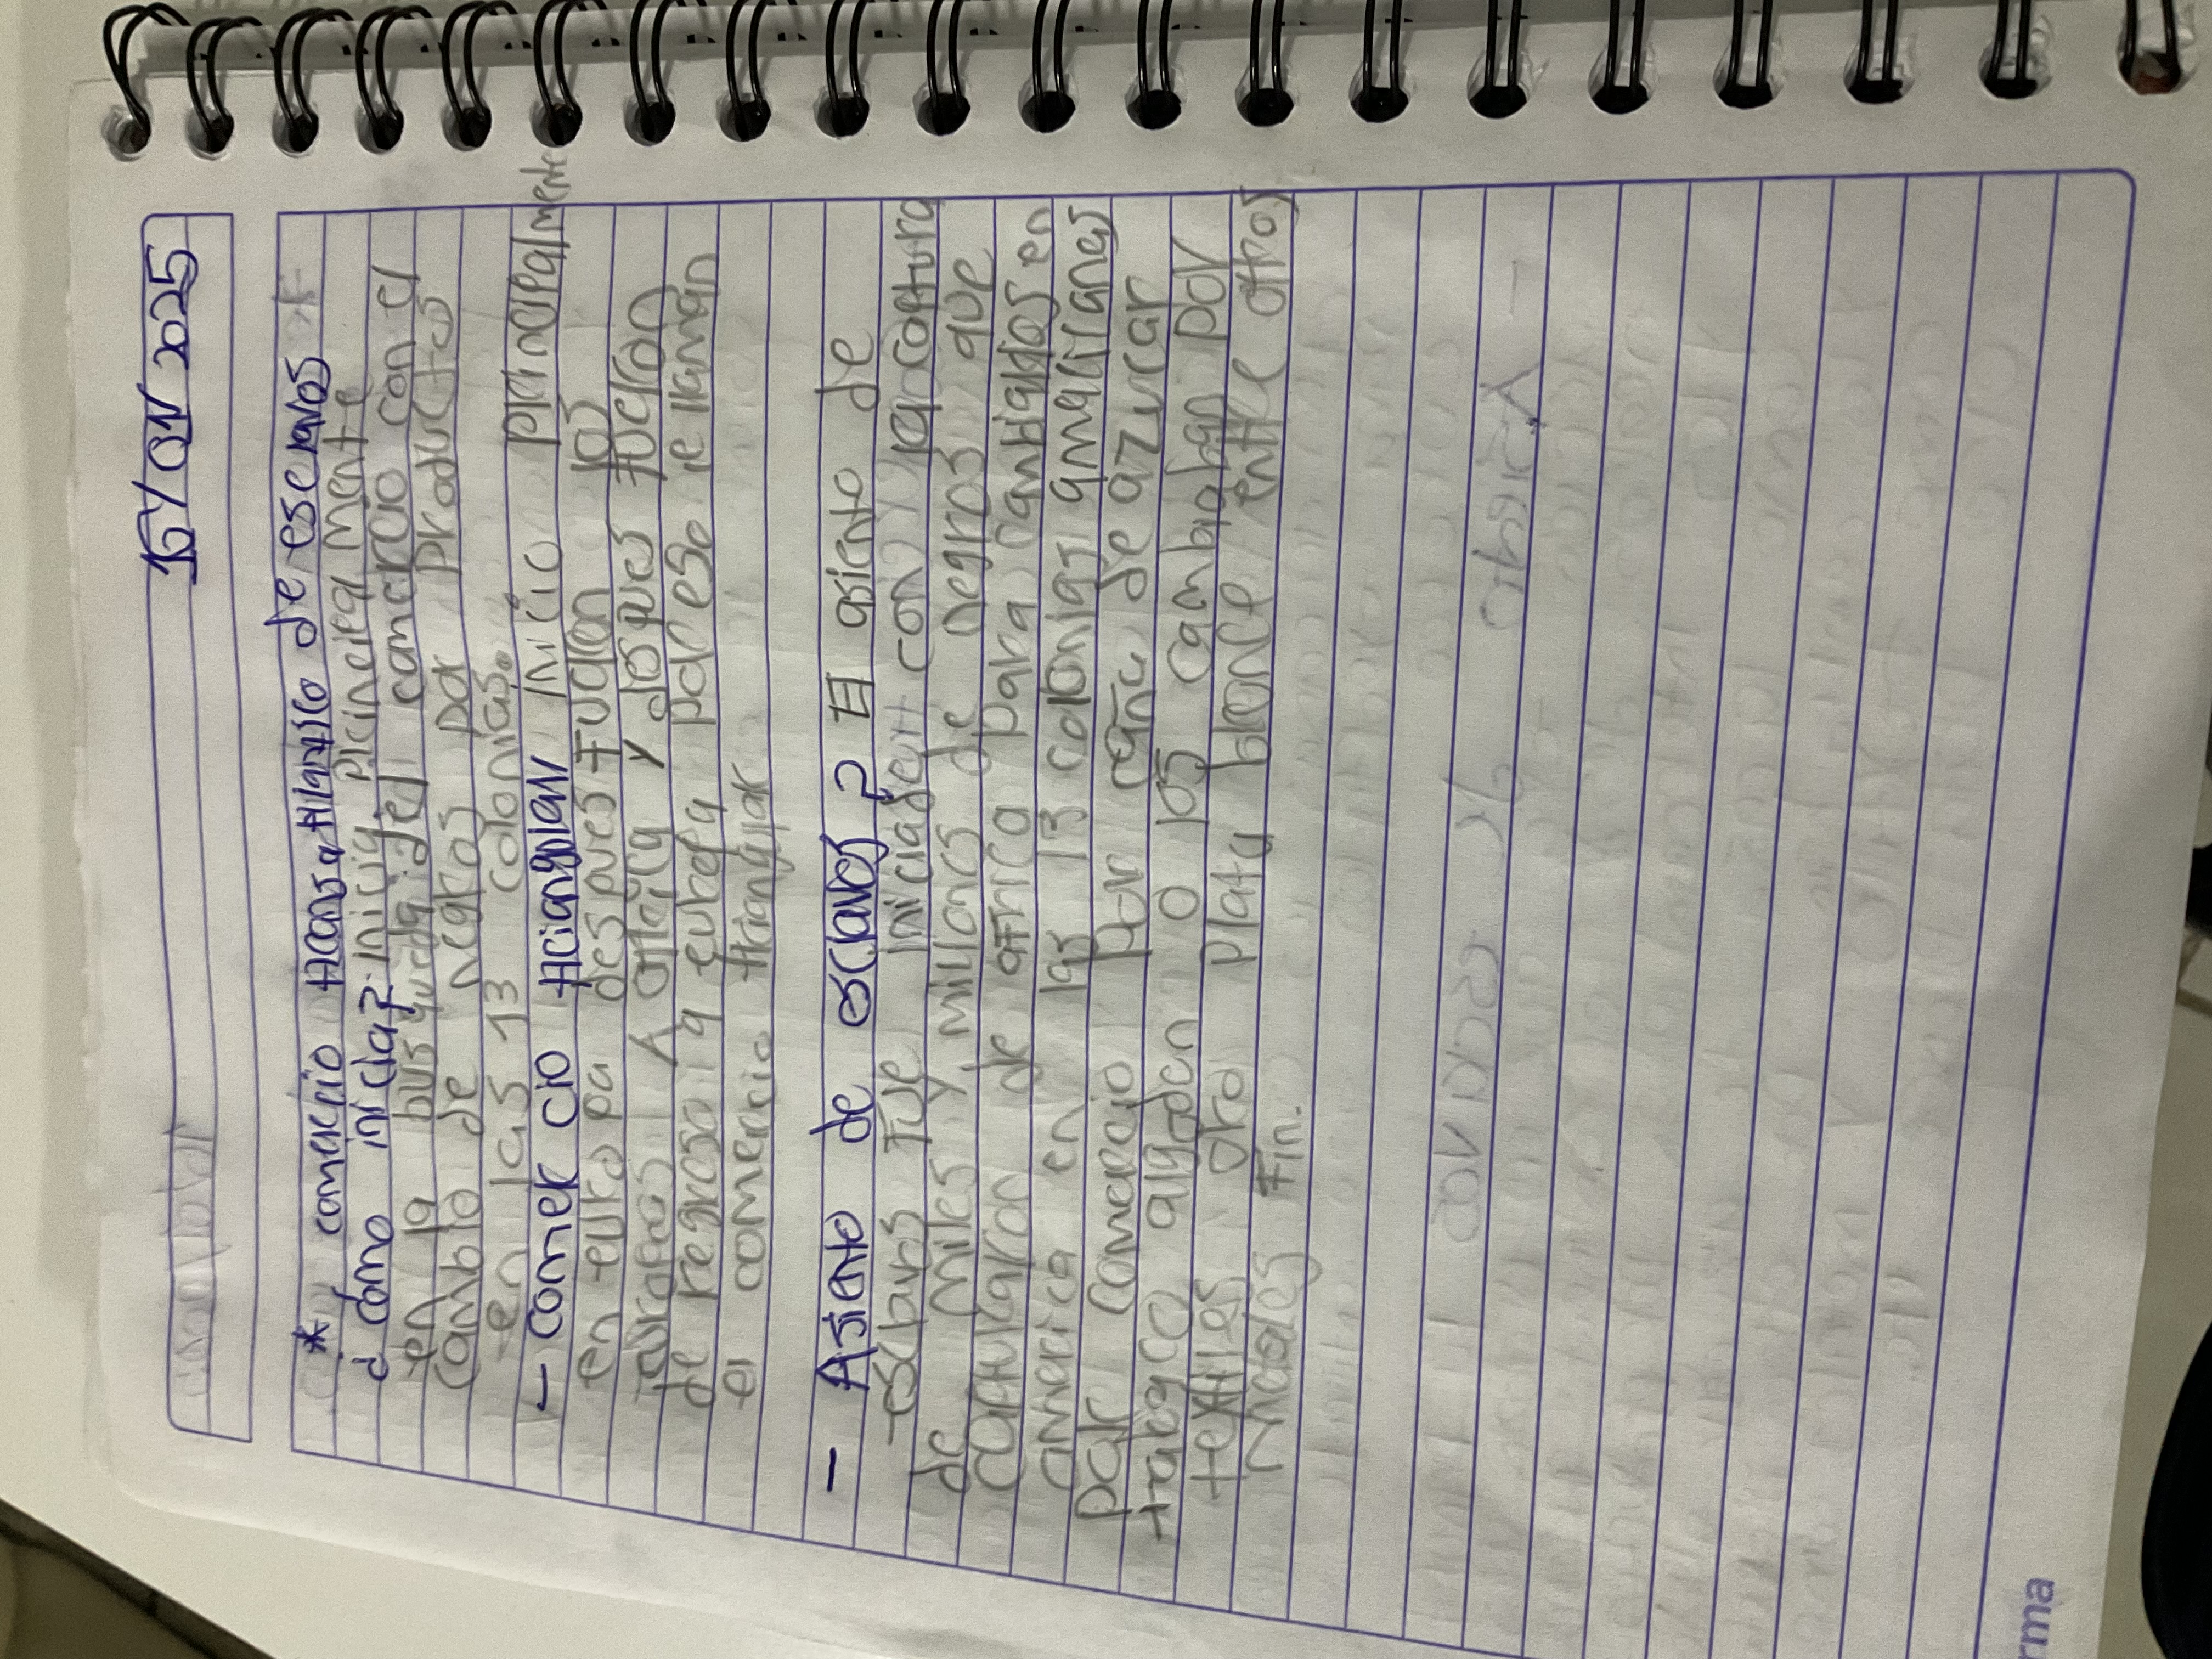 15/01/2025
* comercio transatlantico de esclavos
¿como inicia? inicia principalmente
en la busqueda del comercio con el
cambio de negros por productos
en las 13 colonias.
- comercio triangular inicio principalmente
en europa despues fueron los
a africa y despues fueron
de regreso a europa por eso le llaman
el comercio triangular
- Asiento de esclavos? El asiento de
esclavos fue iniciado con la captura
de miles y millones de negros que
capturaron de africa para cantidades en
america en las 13 colonias
por comercio por caña de azucar
tabaco algodon o los cambiaban por
textiles oro plata bronce entre otros
metales Fin.
rma